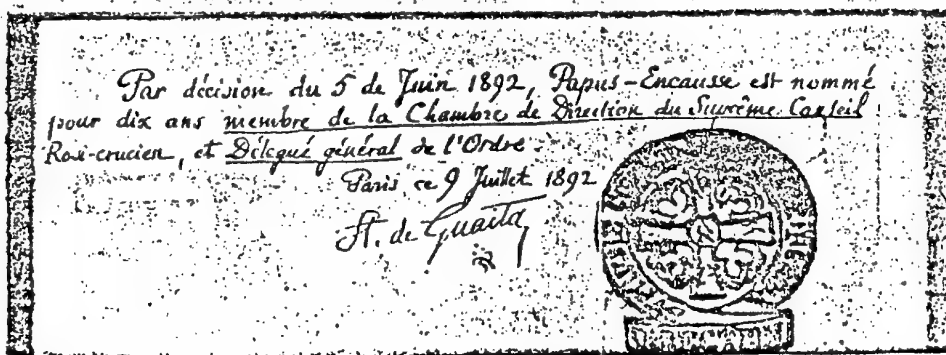 Par décision du 5 de Juin 1892, Papus-Encausse est nommé
pour dix ans membre de la Chambre de Direction du Suprême Conseil
Rose-crucien, et Délégué général de l'Ordre.
Paris ce 9 Juillet 1892
St. de Guaita